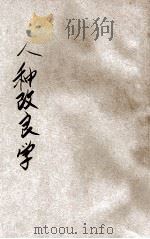 研狗
人种改良学
mtoou.info